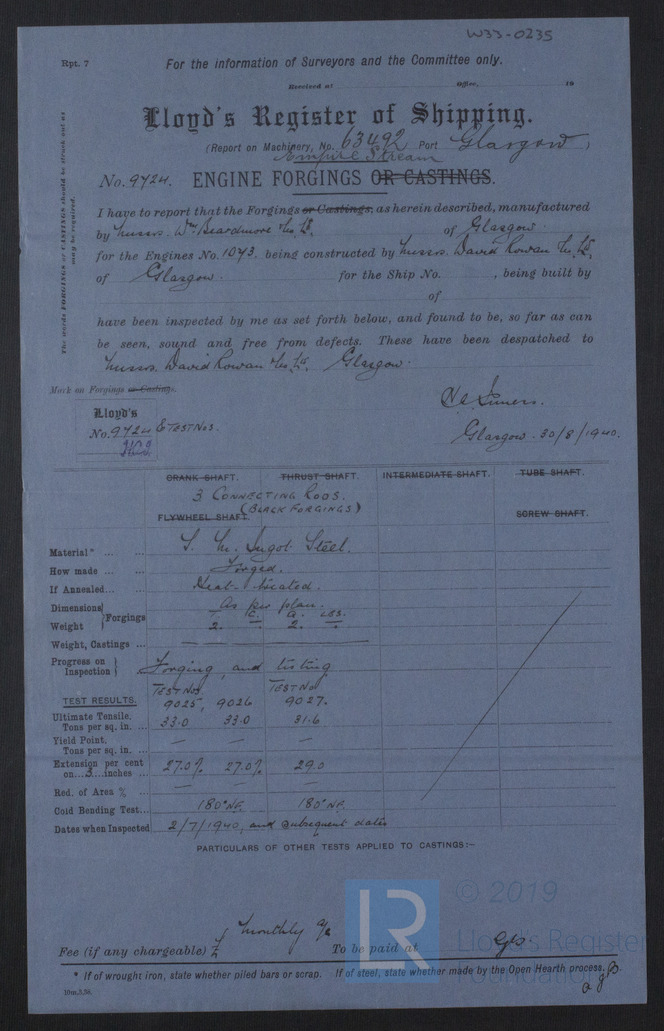 W33-0235
Rpt. 7
For the information of Surveyors and the Committee only.
Received at Office, 19
Lloyd's Register of Shipping.
(Report on Machinery, No. 63492 Port Glasgow)
Empire Stream
No. 9724. ENGINE FORGINGS OR CASTINGS.
The words FORGINGS or CASTINGS should be struck out as may be required.
I have to report that the Forgings or Castings, as herein described, manufactured
by Messrs. Wm. Beardmore & Co. Ld. of Glasgow
for the Engines No. 1073. being constructed by Messrs. David Rowan & Co. Ld.
of Glasgow. for the Ship No. , being built by
of
have been inspected by me as set forth below, and found to be, so far as can
be seen, sound and free from defects. These have been despatched to
Messrs. David Rowan & Co. Ld. Glasgow.
Mark on Forgings or Castings.
Lloyd's
No. 9724 & TEST NOS.
Glasgow. 30/8/1940.
CRANK SHAFT. THRUST SHAFT. INTERMEDIATE SHAFT. TUBE SHAFT.
3 CONNECTING RODS.
(BLACK FORGINGS)
FLYWHEEL SHAFT. SCREW SHAFT.
Material* ... ... S. M. Ingot Steel.
How made ... ... Forged.
If Annealed... ... Heat-treated.
Dimensions } Forgings As per plan.
T. C. Q. LBS.
Weight 2. – 2. –
Weight, Castings ... — —
Progress on Inspection } Forging, and testing
TEST NOS TEST NO
TEST RESULTS. 9025, 9026 9027.
Ultimate Tensile. Tons per sq. in. ... 33.0 33.0 31.6
Yield Point, Tons per sq. in. ... — — —
Extension per cent on...3...inches ... 27.0% 27.0% 29.0
Red. of Area % ... — — —
Cold Bending Test... 180° NF. 180° NF.
Dates when Inspected 2/7/1940, and subsequent dates
PARTICULARS OF OTHER TESTS APPLIED TO CASTINGS:-
Fee (if any chargeable) £ Monthly a/c To be paid at Gls.
* If of wrought iron, state whether piled bars or scrap. If of steel, state whether made by the Open Hearth process,
10m.3.36.
LR
© 2019
Lloyd's Register
Foundation